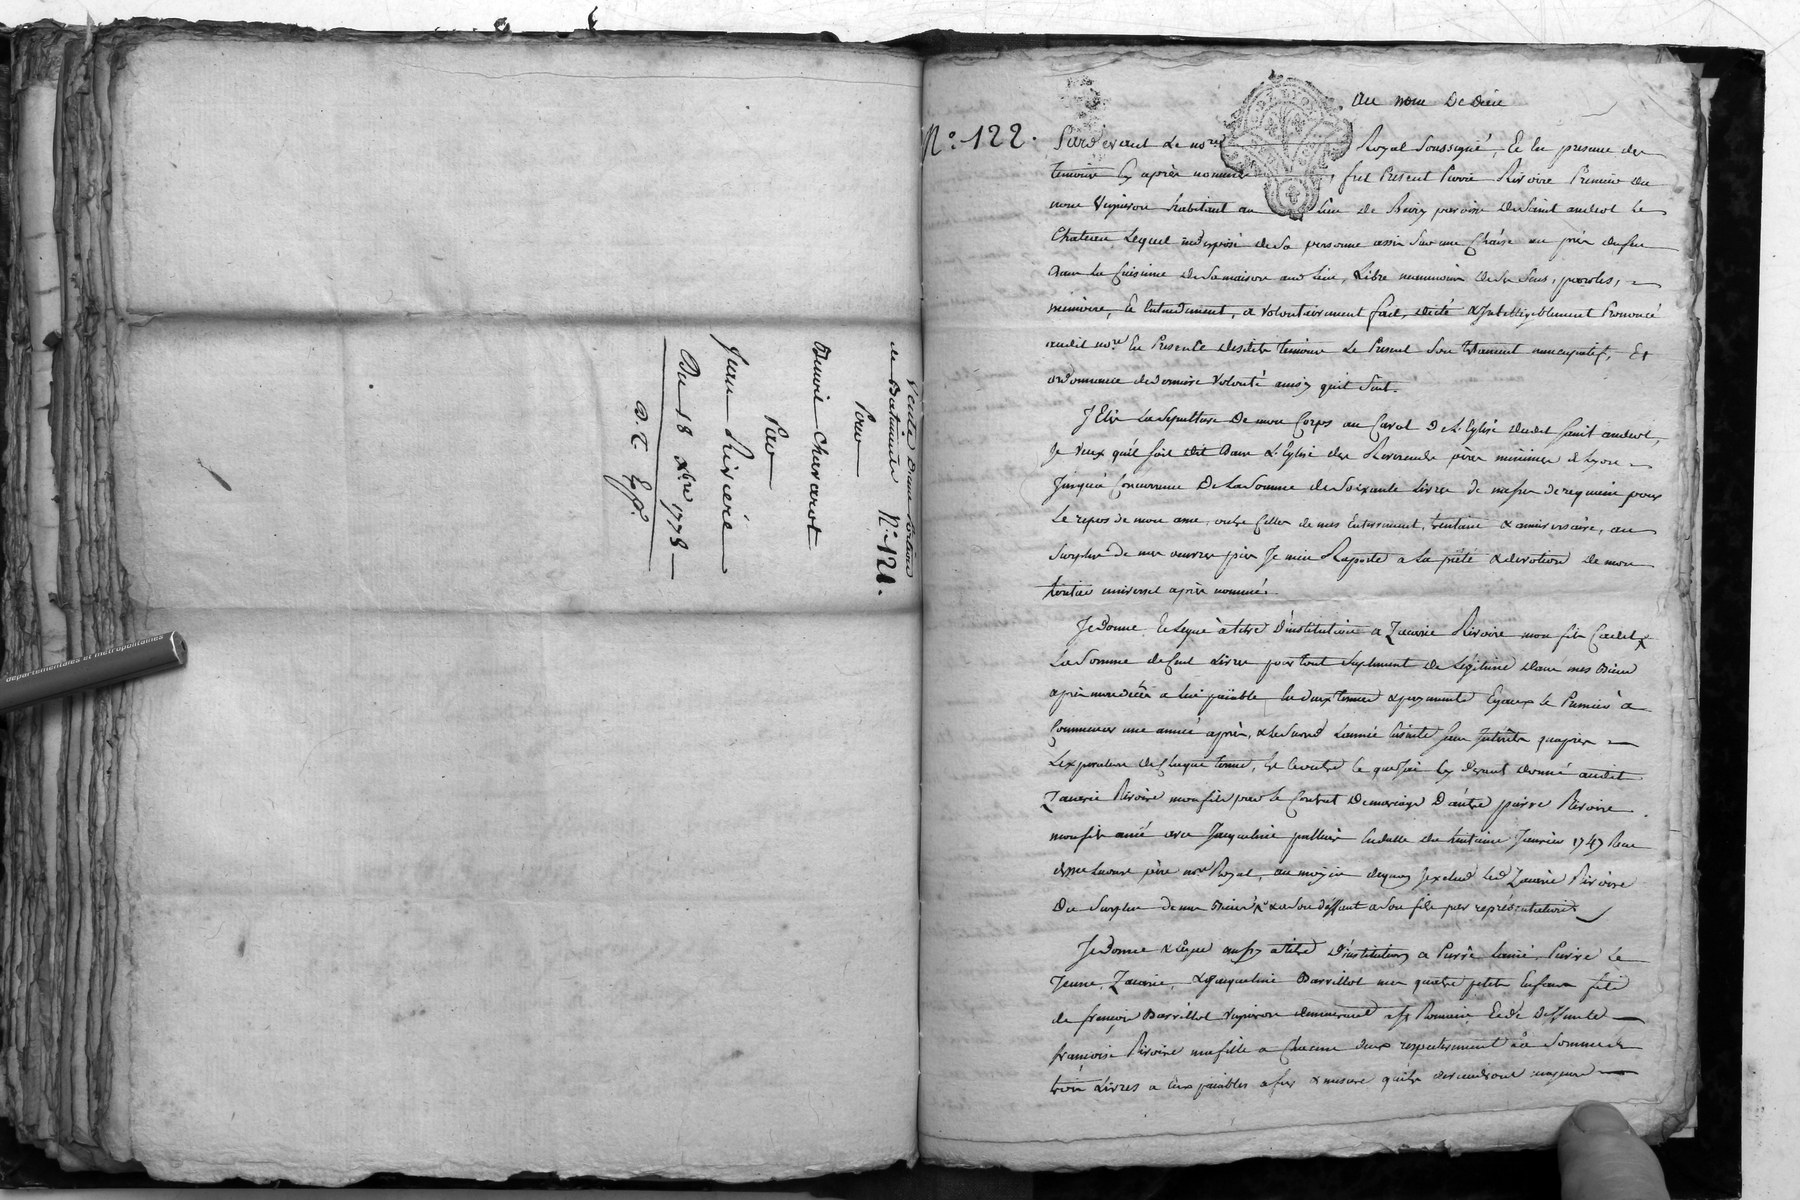 Vente d'une portion
de Batiment N.° 121.
Pour
Benoit Charavot
Par
Jean Rivoire
Du 18 xbre 1778
départementales et métropolitaines
N.° 122.
Au nom De Dieu
Pardevant Le nore Royal Soussigné, Et En presence des
temoins Cy après nommés, fut Present Pierre Rivoire Premier du
nom Vigneron habitant au lieu de paroisse De Saint andeol le
Chateau Lequel indisposé de Sa personne assis Sur une Chaise au près du feu
dans La Cuisine de Sa maison aud Lieu, Libre neanmoins de Ses Sens, paroles,
memoire, Et Entendement, a Volontairement fait, dicté & Intelligiblement Prononcé
audit nore En Presence desdits temoins Le Present Son testament nuncupatif, Et
ordonnance de derniere Volonté ainsy quil Suit.
J'Elis La Sepulture De mon Corps au De L'Eglise dudit Saint andeol,
Je Veux qu'il Soit dit Dans L'Eglise des Reverends peres minimes de Lyon
Jusqu'a Concurrence De La Somme de Soixante Livres de messes de requiem pour
Le repos de mon ame, outre Celles de mes Enterrement, trentaine & anniversaire, au
Surplus de mes oeuvres pies Je m'en Raporte a La pieté & devotion De mon
heritier universel après nommé.
Je Donne Et Legue à titre D'institution a Zacarie Rivoire mon fils Cadet
La Somme de Cent Livres pour tout Suplement de Légitime dans mes Biens
après mon décès a lui païable En deux termes & payements Egaux le Premier a
Commencer une année après, & Le Second L'année Ensuite Sans Interets qu'après
L'expiration de Chaque terme, Et Ce outre le que J'ai Cy devant donné audit
Zacarie Rivoire mon fils par le Contrat De mariage D'autre pierre Rivoire
mon fils ainé avec Jacqueline En datte du trentieme Janvier 1747 Recu
père nore Royal, au moyen dequoy J'exclud led Zacarie Rivoire
Du Surplus de mes Biens & a Son deffaut a Son fils par représentation
Je Donne & Legue aussy a titre D'institution a Pierre L'ainé, Pierre le
Jeune, Zacarie, & Jacqueline Barrillot mes quatre petits Enfans fils
de françois Barrillot Vigneron demeurant a St Romain Et de deffunte
françoise Rivoire ma fille a Chacun d'eux respectivement La Somme de
trois Livres a Eux païables a fur & mesure qu'ils deviendront majeurs